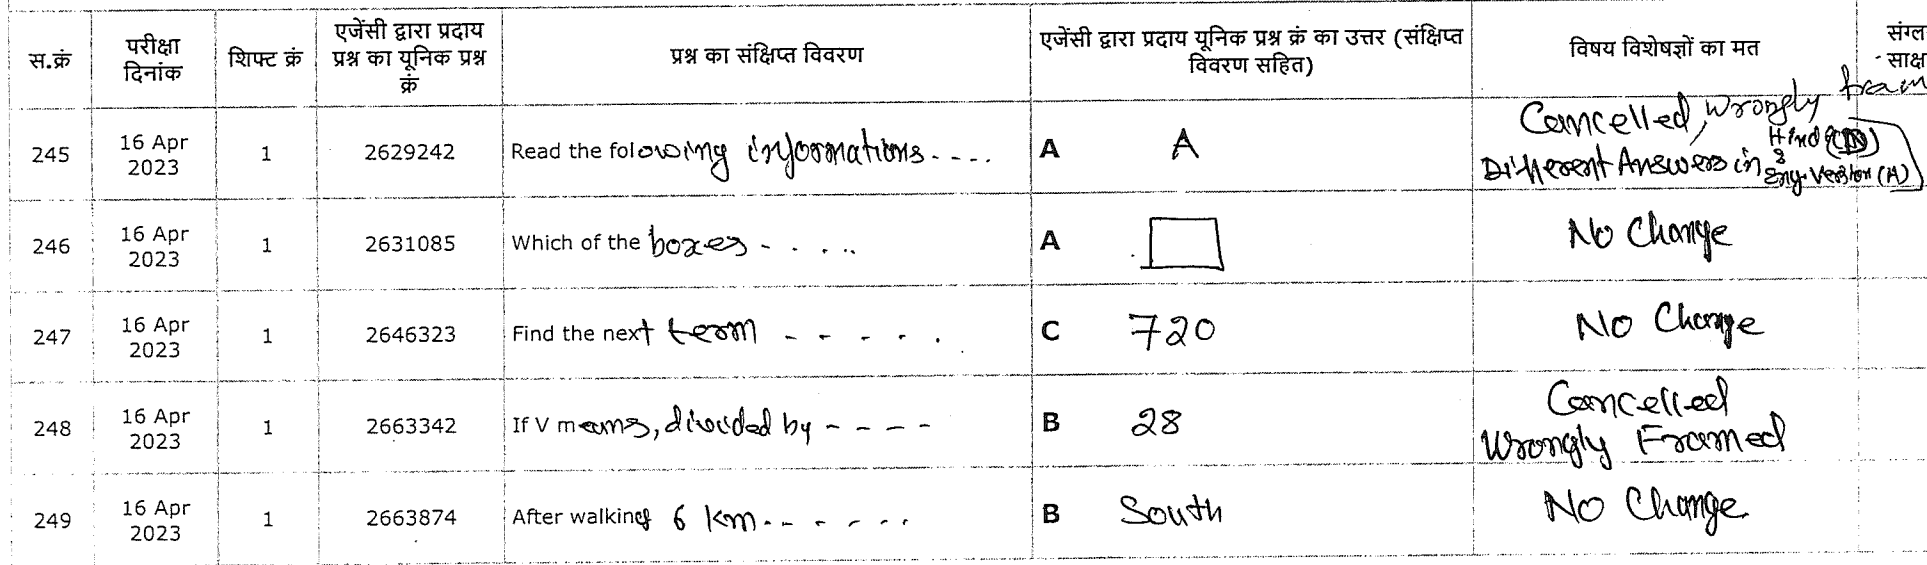 स.क्रं परीक्षा दिनांक शिफ्ट क्रं एजेंसी द्वारा प्रदाय प्रश्न का यूनिक प्रश्न क्रं प्रश्न का संक्षिप्त विवरण एजेंसी द्वारा प्रदाय यूनिक प्रश्न क्रं का उत्तर (संक्षिप्त विवरण सहित) विषय विशेषज्ञों का मत संग्ल साक्ष
245 16 Apr 2023 1 2629242 Read the folowing informations.... A A Cancelled, Wrongly fram
Different Answers in Hindi (D) & Eng. Version (A)
246 16 Apr 2023 1 2631085 Which of the boxes - . . .. A No Change
247 16 Apr 2023 1 2646323 Find the next term - - - - . . C 720 No Change
248 16 Apr 2023 1 2663342 If V means, divided by - - - - B 28 Cancelled
Wrongly Framed
249 16 Apr 2023 1 2663874 After walking 6 km. - - - - . . B South No Change